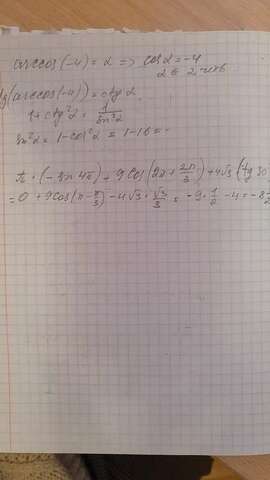 arccos(-4) = α => cos α = -4
tg(arccos(-4)) = ctg α
1 + ctg²α = 1/sin²α
sin²α = 1 - cos²α = 1 - 16 =
π · (- sin 4π) + 9 cos(2π + 2π/3) + 4√3 (tg 30
= 0 + 9 cos(π - π/3) - 4√3 · √3/3 = -9 · 1/2 - 4 = -8 1/2